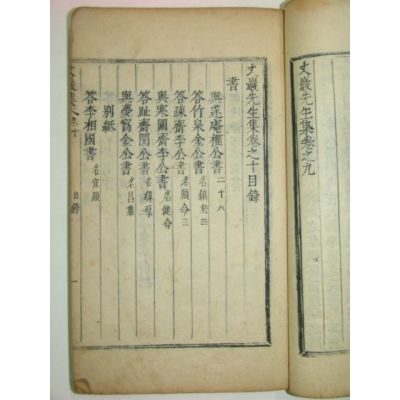 丈巖先生集卷之九
丈巖先生集卷之十目錄
書
與遂庵權公書二十六
答竹泉金公書名鎮圭
答疎齋李公書名頤命
與寒圃齋李公書名健命
答趾齋閔公書名鎮厚
與夢窩金公書名昌集
別紙
答李相國書名宜顯
丈巖集卷十 目錄 一